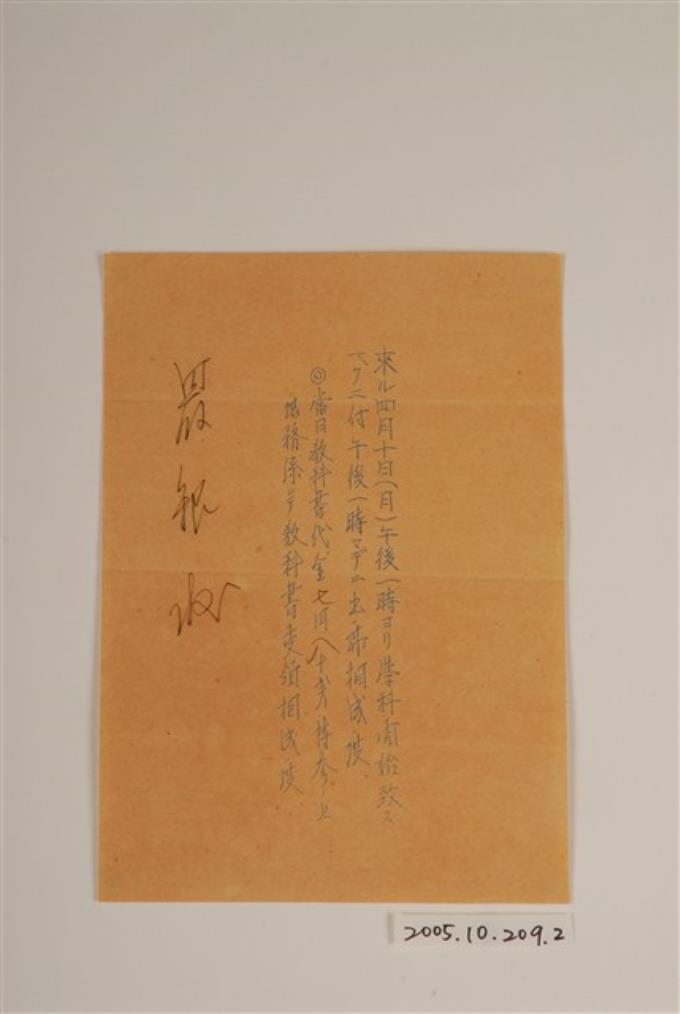 來ル四月十日(月)午後一時ヨリ學科開始致ス
ベクニ付午後一時マデニ出席相成度、
◎當日教科書代金七円八十銭持参ノ上
務係ニテ教科書受領相成度、
銀
2005.10.209.2